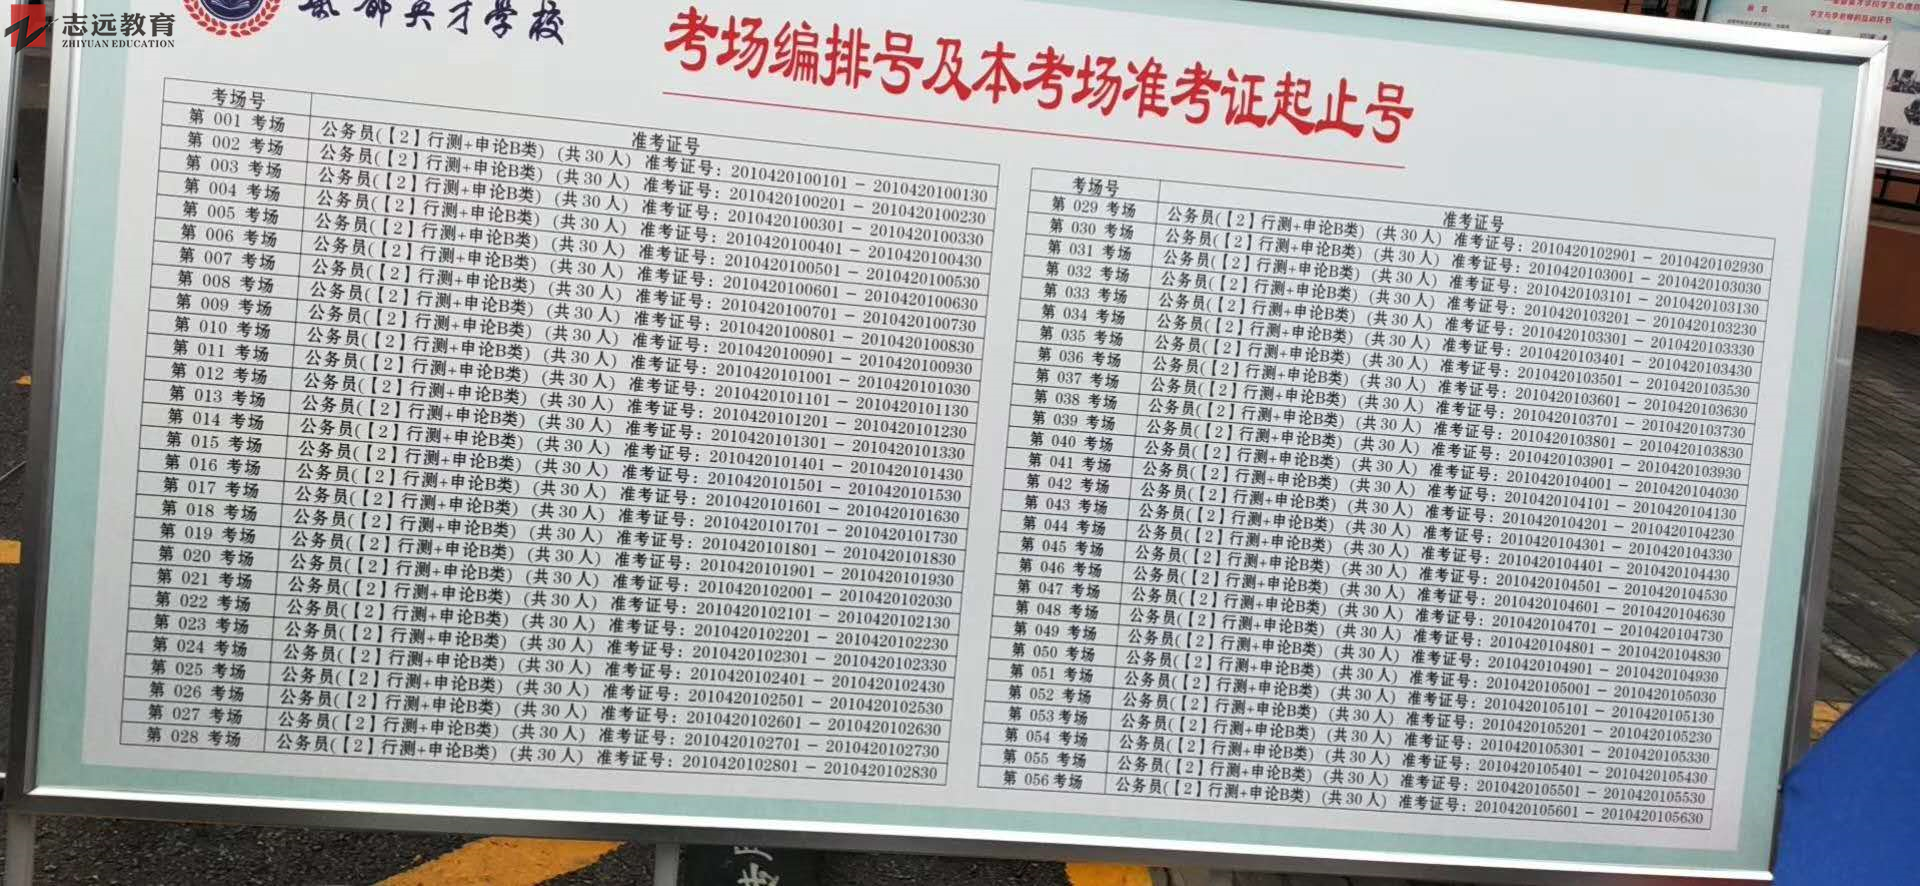 志远教育
ZHIYUAN EDUCATION
英才学校
考场编排号及本考场准考证起止号
考场号 准考证号
第 001 考场 公务员(【2】行测+申论B类) (共30人) 准考证号: 2010420100101 - 2010420100130
第 002 考场 公务员(【2】行测+申论B类) (共30人) 准考证号: 2010420100201 - 2010420100230
第 003 考场 公务员(【2】行测+申论B类) (共30人) 准考证号: 2010420100301 - 2010420100330
第 004 考场 公务员(【2】行测+申论B类) (共30人) 准考证号: 2010420100401 - 2010420100430
第 005 考场 公务员(【2】行测+申论B类) (共30人) 准考证号: 2010420100501 - 2010420100530
第 006 考场 公务员(【2】行测+申论B类) (共30人) 准考证号: 2010420100601 - 2010420100630
第 007 考场 公务员(【2】行测+申论B类) (共30人) 准考证号: 2010420100701 - 2010420100730
第 008 考场 公务员(【2】行测+申论B类) (共30人) 准考证号: 2010420100801 - 2010420100830
第 009 考场 公务员(【2】行测+申论B类) (共30人) 准考证号: 2010420100901 - 2010420100930
第 010 考场 公务员(【2】行测+申论B类) (共30人) 准考证号: 2010420101001 - 2010420101030
第 011 考场 公务员(【2】行测+申论B类) (共30人) 准考证号: 2010420101101 - 2010420101130
第 012 考场 公务员(【2】行测+申论B类) (共30人) 准考证号: 2010420101201 - 2010420101230
第 013 考场 公务员(【2】行测+申论B类) (共30人) 准考证号: 2010420101301 - 2010420101330
第 014 考场 公务员(【2】行测+申论B类) (共30人) 准考证号: 2010420101401 - 2010420101430
第 015 考场 公务员(【2】行测+申论B类) (共30人) 准考证号: 2010420101501 - 2010420101530
第 016 考场 公务员(【2】行测+申论B类) (共30人) 准考证号: 2010420101601 - 2010420101630
第 017 考场 公务员(【2】行测+申论B类) (共30人) 准考证号: 2010420101701 - 2010420101730
第 018 考场 公务员(【2】行测+申论B类) (共30人) 准考证号: 2010420101801 - 2010420101830
第 019 考场 公务员(【2】行测+申论B类) (共30人) 准考证号: 2010420101901 - 2010420101930
第 020 考场 公务员(【2】行测+申论B类) (共30人) 准考证号: 2010420102001 - 2010420102030
第 021 考场 公务员(【2】行测+申论B类) (共30人) 准考证号: 2010420102101 - 2010420102130
第 022 考场 公务员(【2】行测+申论B类) (共30人) 准考证号: 2010420102201 - 2010420102230
第 023 考场 公务员(【2】行测+申论B类) (共30人) 准考证号: 2010420102301 - 2010420102330
第 024 考场 公务员(【2】行测+申论B类) (共30人) 准考证号: 2010420102401 - 2010420102430
第 025 考场 公务员(【2】行测+申论B类) (共30人) 准考证号: 2010420102501 - 2010420102530
第 026 考场 公务员(【2】行测+申论B类) (共30人) 准考证号: 2010420102601 - 2010420102630
第 027 考场 公务员(【2】行测+申论B类) (共30人) 准考证号: 2010420102701 - 2010420102730
第 028 考场 公务员(【2】行测+申论B类) (共30人) 准考证号: 2010420102801 - 2010420102830
考场号 准考证号
第 029 考场 公务员(【2】行测+申论B类) (共30人) 准考证号: 2010420102901 - 2010420102930
第 030 考场 公务员(【2】行测+申论B类) (共30人) 准考证号: 2010420103001 - 2010420103030
第 031 考场 公务员(【2】行测+申论B类) (共30人) 准考证号: 2010420103101 - 2010420103130
第 032 考场 公务员(【2】行测+申论B类) (共30人) 准考证号: 2010420103201 - 2010420103230
第 033 考场 公务员(【2】行测+申论B类) (共30人) 准考证号: 2010420103301 - 2010420103330
第 034 考场 公务员(【2】行测+申论B类) (共30人) 准考证号: 2010420103401 - 2010420103430
第 035 考场 公务员(【2】行测+申论B类) (共30人) 准考证号: 2010420103501 - 2010420103530
第 036 考场 公务员(【2】行测+申论B类) (共30人) 准考证号: 2010420103601 - 2010420103630
第 037 考场 公务员(【2】行测+申论B类) (共30人) 准考证号: 2010420103701 - 2010420103730
第 038 考场 公务员(【2】行测+申论B类) (共30人) 准考证号: 2010420103801 - 2010420103830
第 039 考场 公务员(【2】行测+申论B类) (共30人) 准考证号: 2010420103901 - 2010420103930
第 040 考场 公务员(【2】行测+申论B类) (共30人) 准考证号: 2010420104001 - 2010420104030
第 041 考场 公务员(【2】行测+申论B类) (共30人) 准考证号: 2010420104101 - 2010420104130
第 042 考场 公务员(【2】行测+申论B类) (共30人) 准考证号: 2010420104201 - 2010420104230
第 043 考场 公务员(【2】行测+申论B类) (共30人) 准考证号: 2010420104301 - 2010420104330
第 044 考场 公务员(【2】行测+申论B类) (共30人) 准考证号: 2010420104401 - 2010420104430
第 045 考场 公务员(【2】行测+申论B类) (共30人) 准考证号: 2010420104501 - 2010420104530
第 046 考场 公务员(【2】行测+申论B类) (共30人) 准考证号: 2010420104601 - 2010420104630
第 047 考场 公务员(【2】行测+申论B类) (共30人) 准考证号: 2010420104701 - 2010420104730
第 048 考场 公务员(【2】行测+申论B类) (共30人) 准考证号: 2010420104801 - 2010420104830
第 049 考场 公务员(【2】行测+申论B类) (共30人) 准考证号: 2010420104901 - 2010420104930
第 050 考场 公务员(【2】行测+申论B类) (共30人) 准考证号: 2010420105001 - 2010420105030
第 051 考场 公务员(【2】行测+申论B类) (共30人) 准考证号: 2010420105101 - 2010420105130
第 052 考场 公务员(【2】行测+申论B类) (共30人) 准考证号: 2010420105201 - 2010420105230
第 053 考场 公务员(【2】行测+申论B类) (共30人) 准考证号: 2010420105301 - 2010420105330
第 054 考场 公务员(【2】行测+申论B类) (共30人) 准考证号: 2010420105401 - 2010420105430
第 055 考场 公务员(【2】行测+申论B类) (共30人) 准考证号: 2010420105501 - 2010420105530
第 056 考场 公务员(【2】行测+申论B类) (共30人) 准考证号: 2010420105601 - 2010420105630